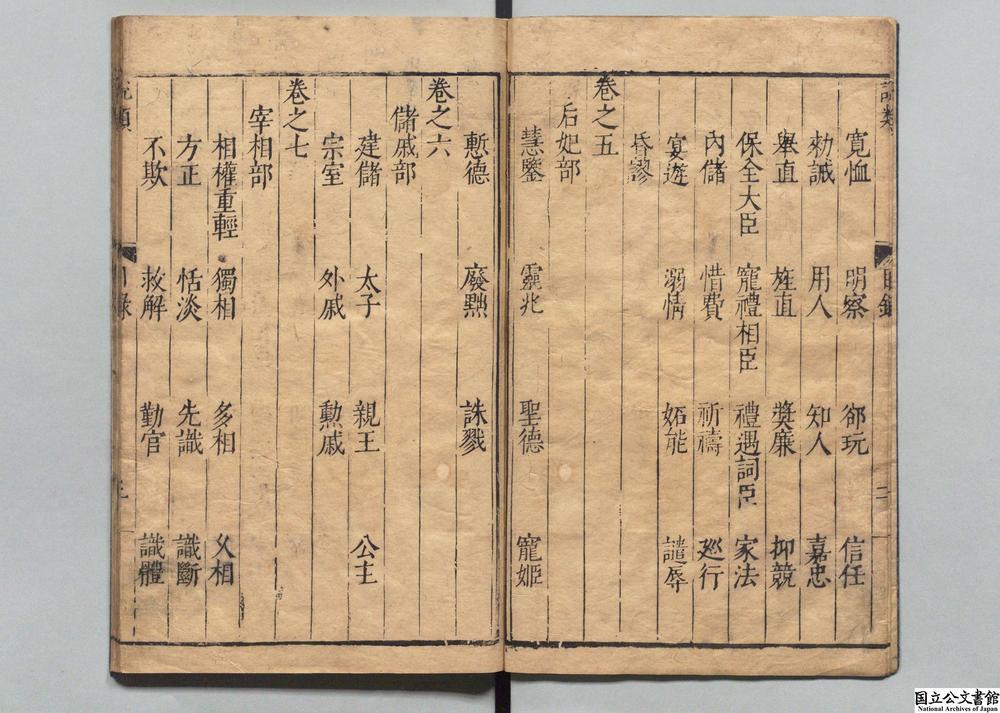 說類
目錄
二
寛恤 明察 郤玩 信任
勑誡 用人 知人 嘉忠
舉直 旌直 奬廉 抑競
保全大臣 寵禮相臣 禮遇詞臣 家法
內儲 惜費 祈禱 廵行
宴遊 溺情 妬能 譴辱
昏謬
卷之五
后妃部
慧鑒 靈兆 聖德 寵姬
慙德 廢黜 誅戮
卷之六
儲戚部
建儲 太子 親王 公主
宗室 外戚 勲戚
卷之七
宰相部
相權重輕 獨相 多相 久相
方正 恬淡 先識 識斷
不欺 救解 勤官 識體
說類
目錄
三
国立公文書館
National Archives of Japan